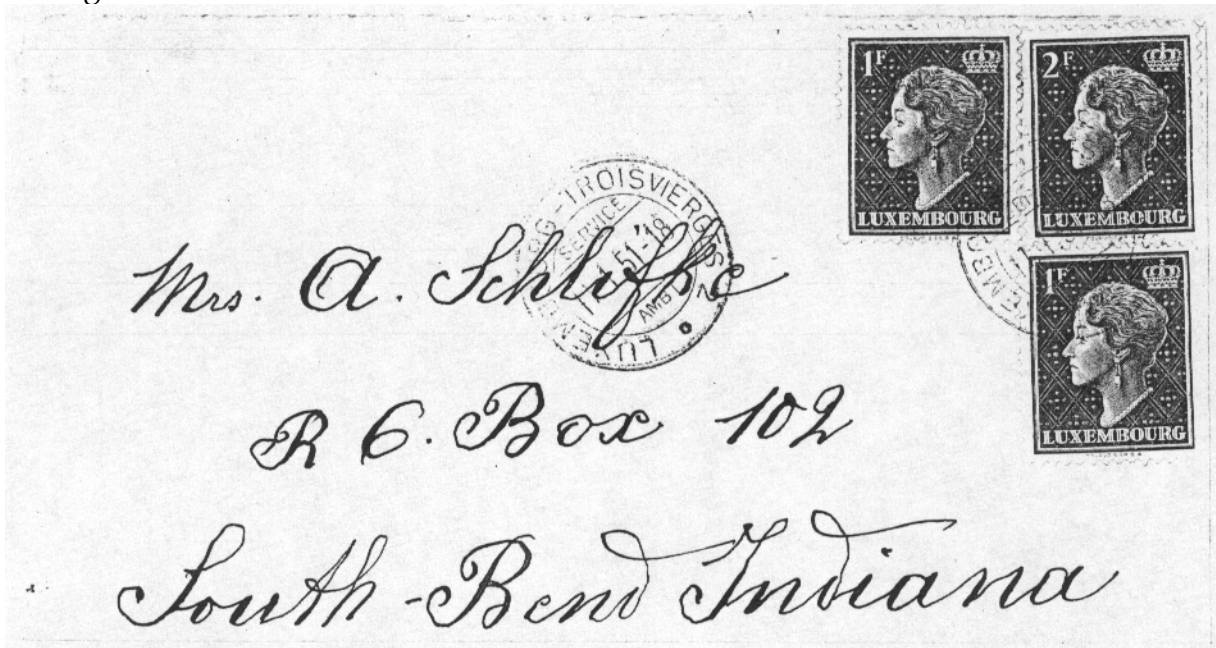 1F
2F
LUXEMBOURG
LUXEMBOURG
1F
LUXEMBOURG
TROISVIERGES
SERVICE
51-18
AMB
Mrs. A. Schlifke
R 6. Box 102
South-Bend Indiana